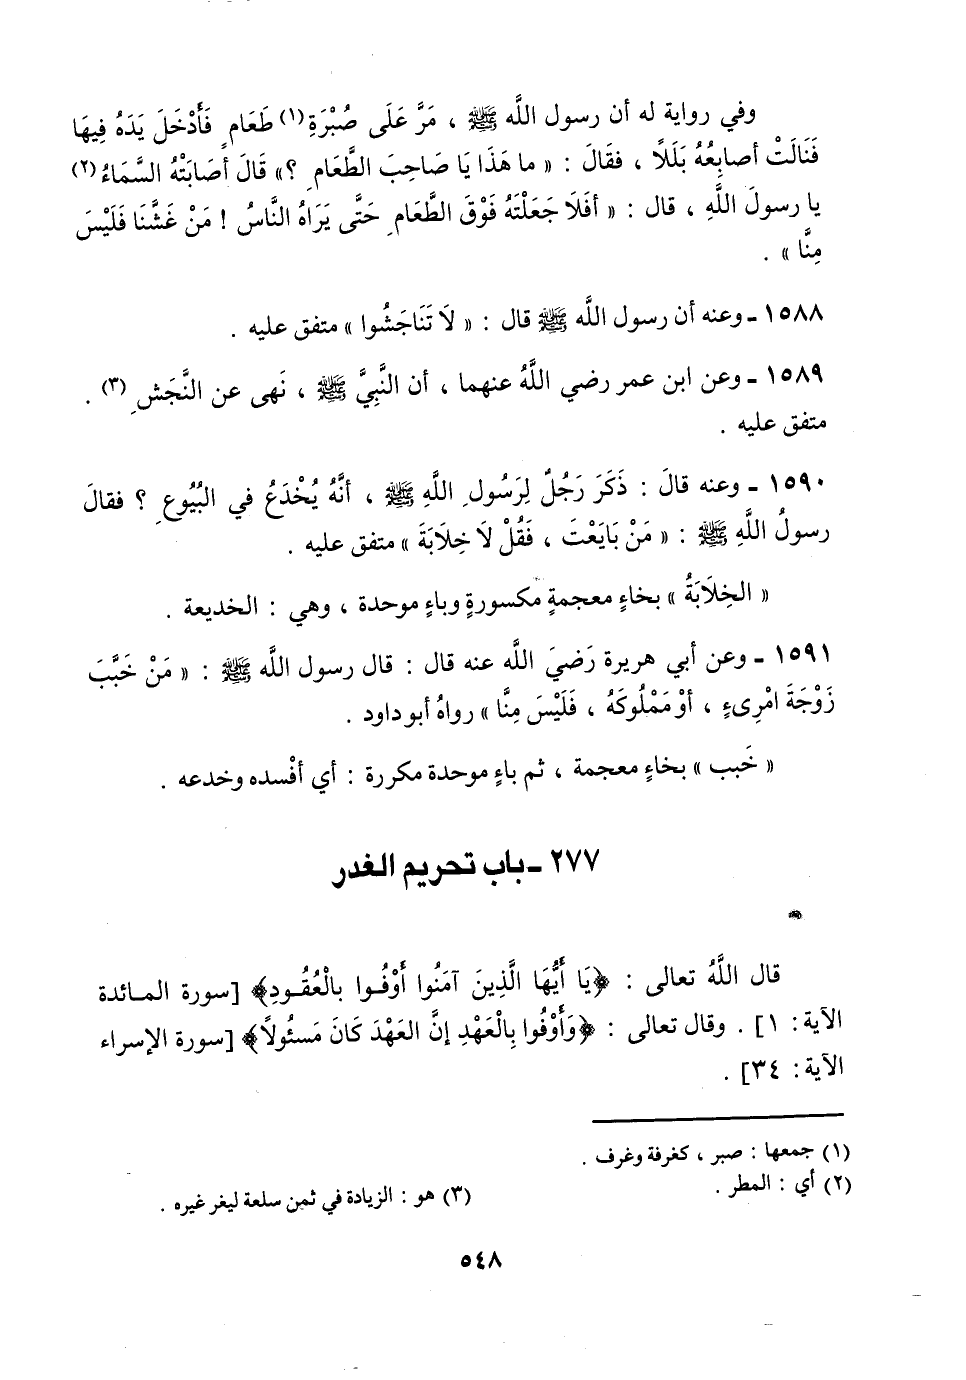 وفي رواية له أن رسول اللَّه ﷺ ، مَرَّ عَلَى صُبْرَةِ (١) طَعَامٍ فَأَدْخَلَ يَدَهُ فِيهَا
فَنَالَتْ أصابِعُهُ بَلَلًا ، فقَالَ : « ما هَذَا يَا صَاحِبَ الطَّعَامِ ؟» قَالَ أصَابَتْهُ السَّمَاءُ (٢)
يا رسولَ اللَّهِ ، قال : « أفَلَا جَعَلْتَهُ فَوْقَ الطَّعَامِ حَتَّى يَرَاهُ النَّاسُ ! مَنْ غَشَّنَا فَلَيْسَ
مِنَّا » .
١٥٨٨ ـ وعنه أن رسول اللَّه ﷺ قال : « لَا تَنَاجَشُوا » متفق عليه .
١٥٨٩ ـ وعن ابن عمر رضي اللَّهُ عنهما ، أن النَّبِيَّ ﷺ ، نَهى عن النَّجَشِ (٣) .
متفق عليه .
١٥٩٠ ـ وعنه قالَ : ذَكَرَ رَجُلٌ لِرَسُولِ اللَّهِ ﷺ ، أنَّهُ يُخْدَعُ في البُيُوعِ ؟ فقالَ
رسولُ اللَّهِ ﷺ : « مَنْ بَايَعْتَ ، فَقُلْ لَا خِلَابَةَ » متفق عليه .
« الخِلَابَةُ » بخاءٍ معجمةٍ مكسورةٍ وباءٍ موحدة ، وهي : الخديعة .
١٥٩١ ـ وعن أبي هريرة رَضيَ اللَّه عنه قال : قال رسول اللَّه ﷺ : « مَنْ خَبَّبَ
زَوْجَةَ امْرِىءٍ ، أوْ مَمْلُوكَهُ ، فَلَيْسَ مِنَّا » رواهُ أبو داود .
« خَبب » بخاءٍ معجمة ، ثم باءٍ موحدة مكررة : أي أفْسده وخدعه .
٢٧٧ ـ باب تحريم الغدر
قال اللَّهُ تعالى : ﴿يَا أَيُّهَا الَّذِينَ آمَنُوا أَوْفُوا بالْعُقُودِ﴾ [سورة المائدة
الآية: ١] . وقال تعالى : ﴿وَأَوْفُوا بِالْعَهْدِ إنَّ العَهْدَ كَانَ مَسْئُولًا﴾ [سورة الإسراء
الآية: ٣٤] .
(١) جمعها : صبر ، كغرفة وغرف .
(٢) أي : المطر .
(٣) هو : الزيادة في ثمن سلعة ليغر غيره .
٥٤٨